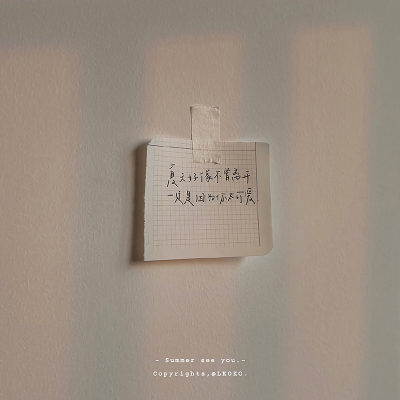 夏天好像不曾离开
一定是因为你太可爱
- Summer see you.-
Copyrights,@LKOKO.